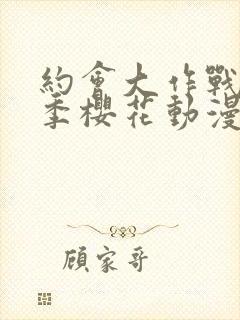 約會大作戰
季櫻花動漫
顧家哥